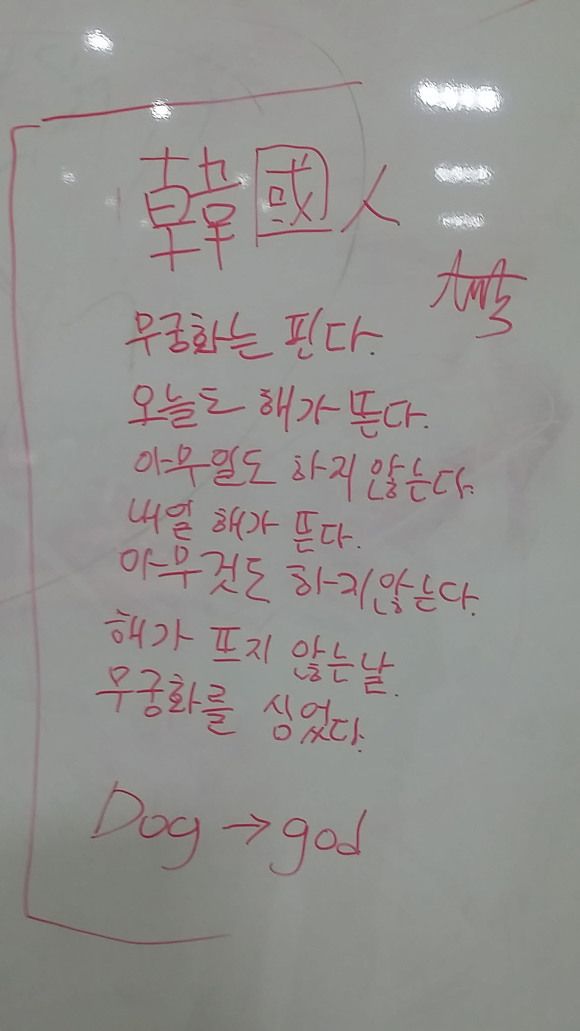 韓國人
무궁화는 핀다.
오늘도 해가 뜬다.
아무일도 하지 않는다.
내일 해가 뜬다.
아무것도 하지않는다.
해가 뜨지 않는날.
무궁화를 심었다.
Dog → god